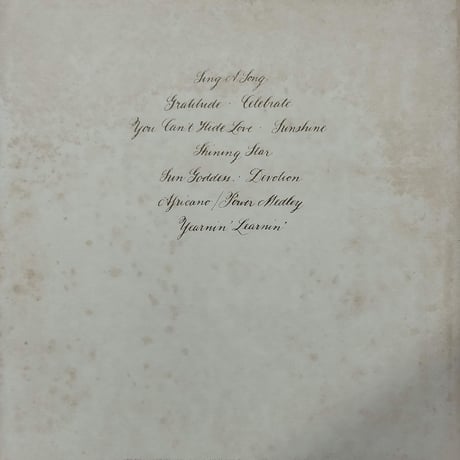 Sing A Song
Gratitude · Celebrate
You Can't Hide Love · Sunshine
Shining Star
Sun Goddess · Devotion
Africano / Power Medley
Yearnin' Learnin'